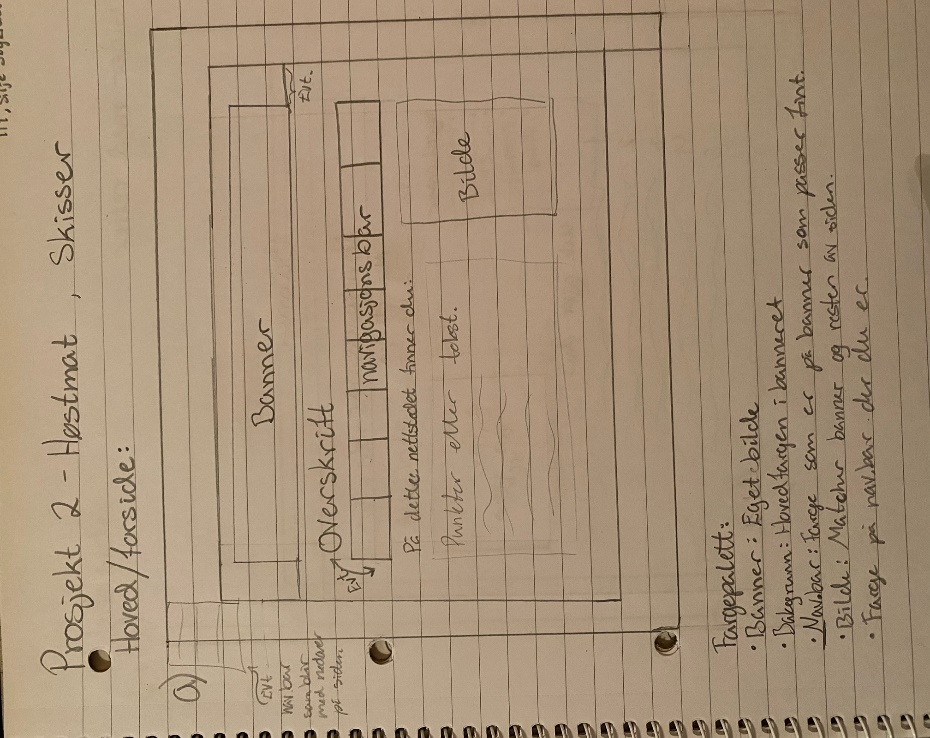 Prosjekt 2 - Høstmat, Skisser
Hoved/forside:
a)
Evt.
navbar
som blir
med nedover
på siden.
Banner
Evt.
Evt.
Overskrift
navigasjonsbar
På dette nettstedet finner du:
Punkter eller tekst.
Bilde
Fargepalett:
• Banner: Eget bilde
• Bakgrunn: Hovedfargen i banneret
• Navbar: Farge som er på banner som passer fint.
• Bilde: Matcher banner og resten av siden.
• Farge på navbar der du er.